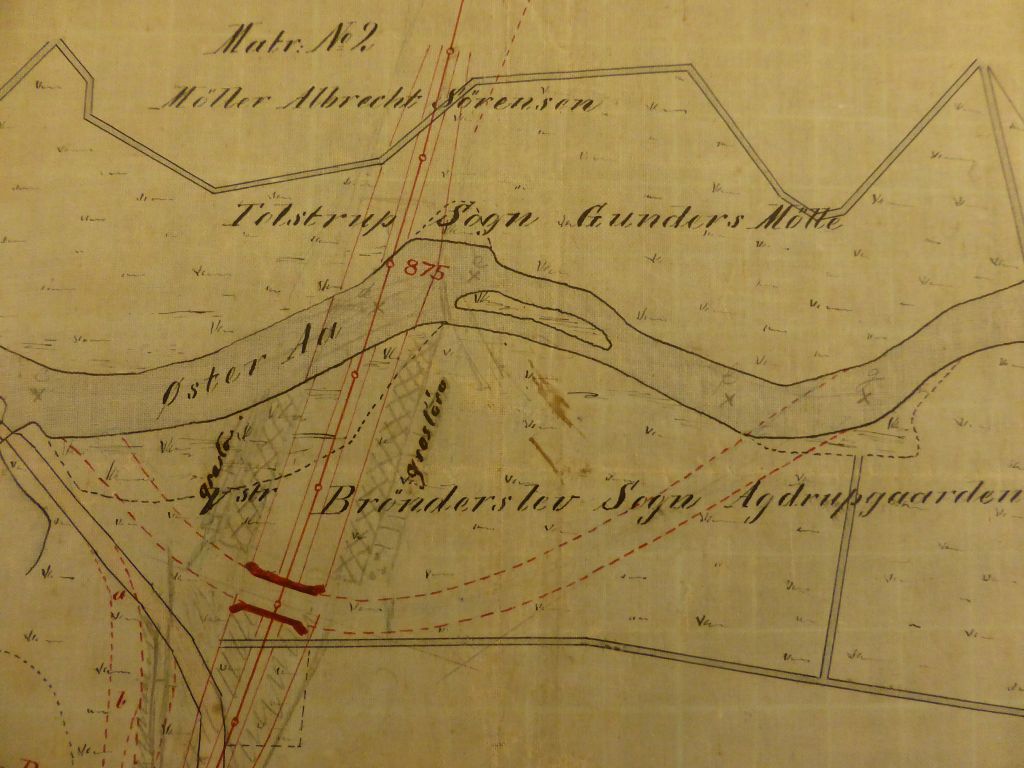 Matr: No 2
Möller Albrecht Sörensen
Tolstrup Sogn Gunders Mölle
875
Øster Aa
Vstr Brönderslev Sogn Agdrupgaarden
a
b